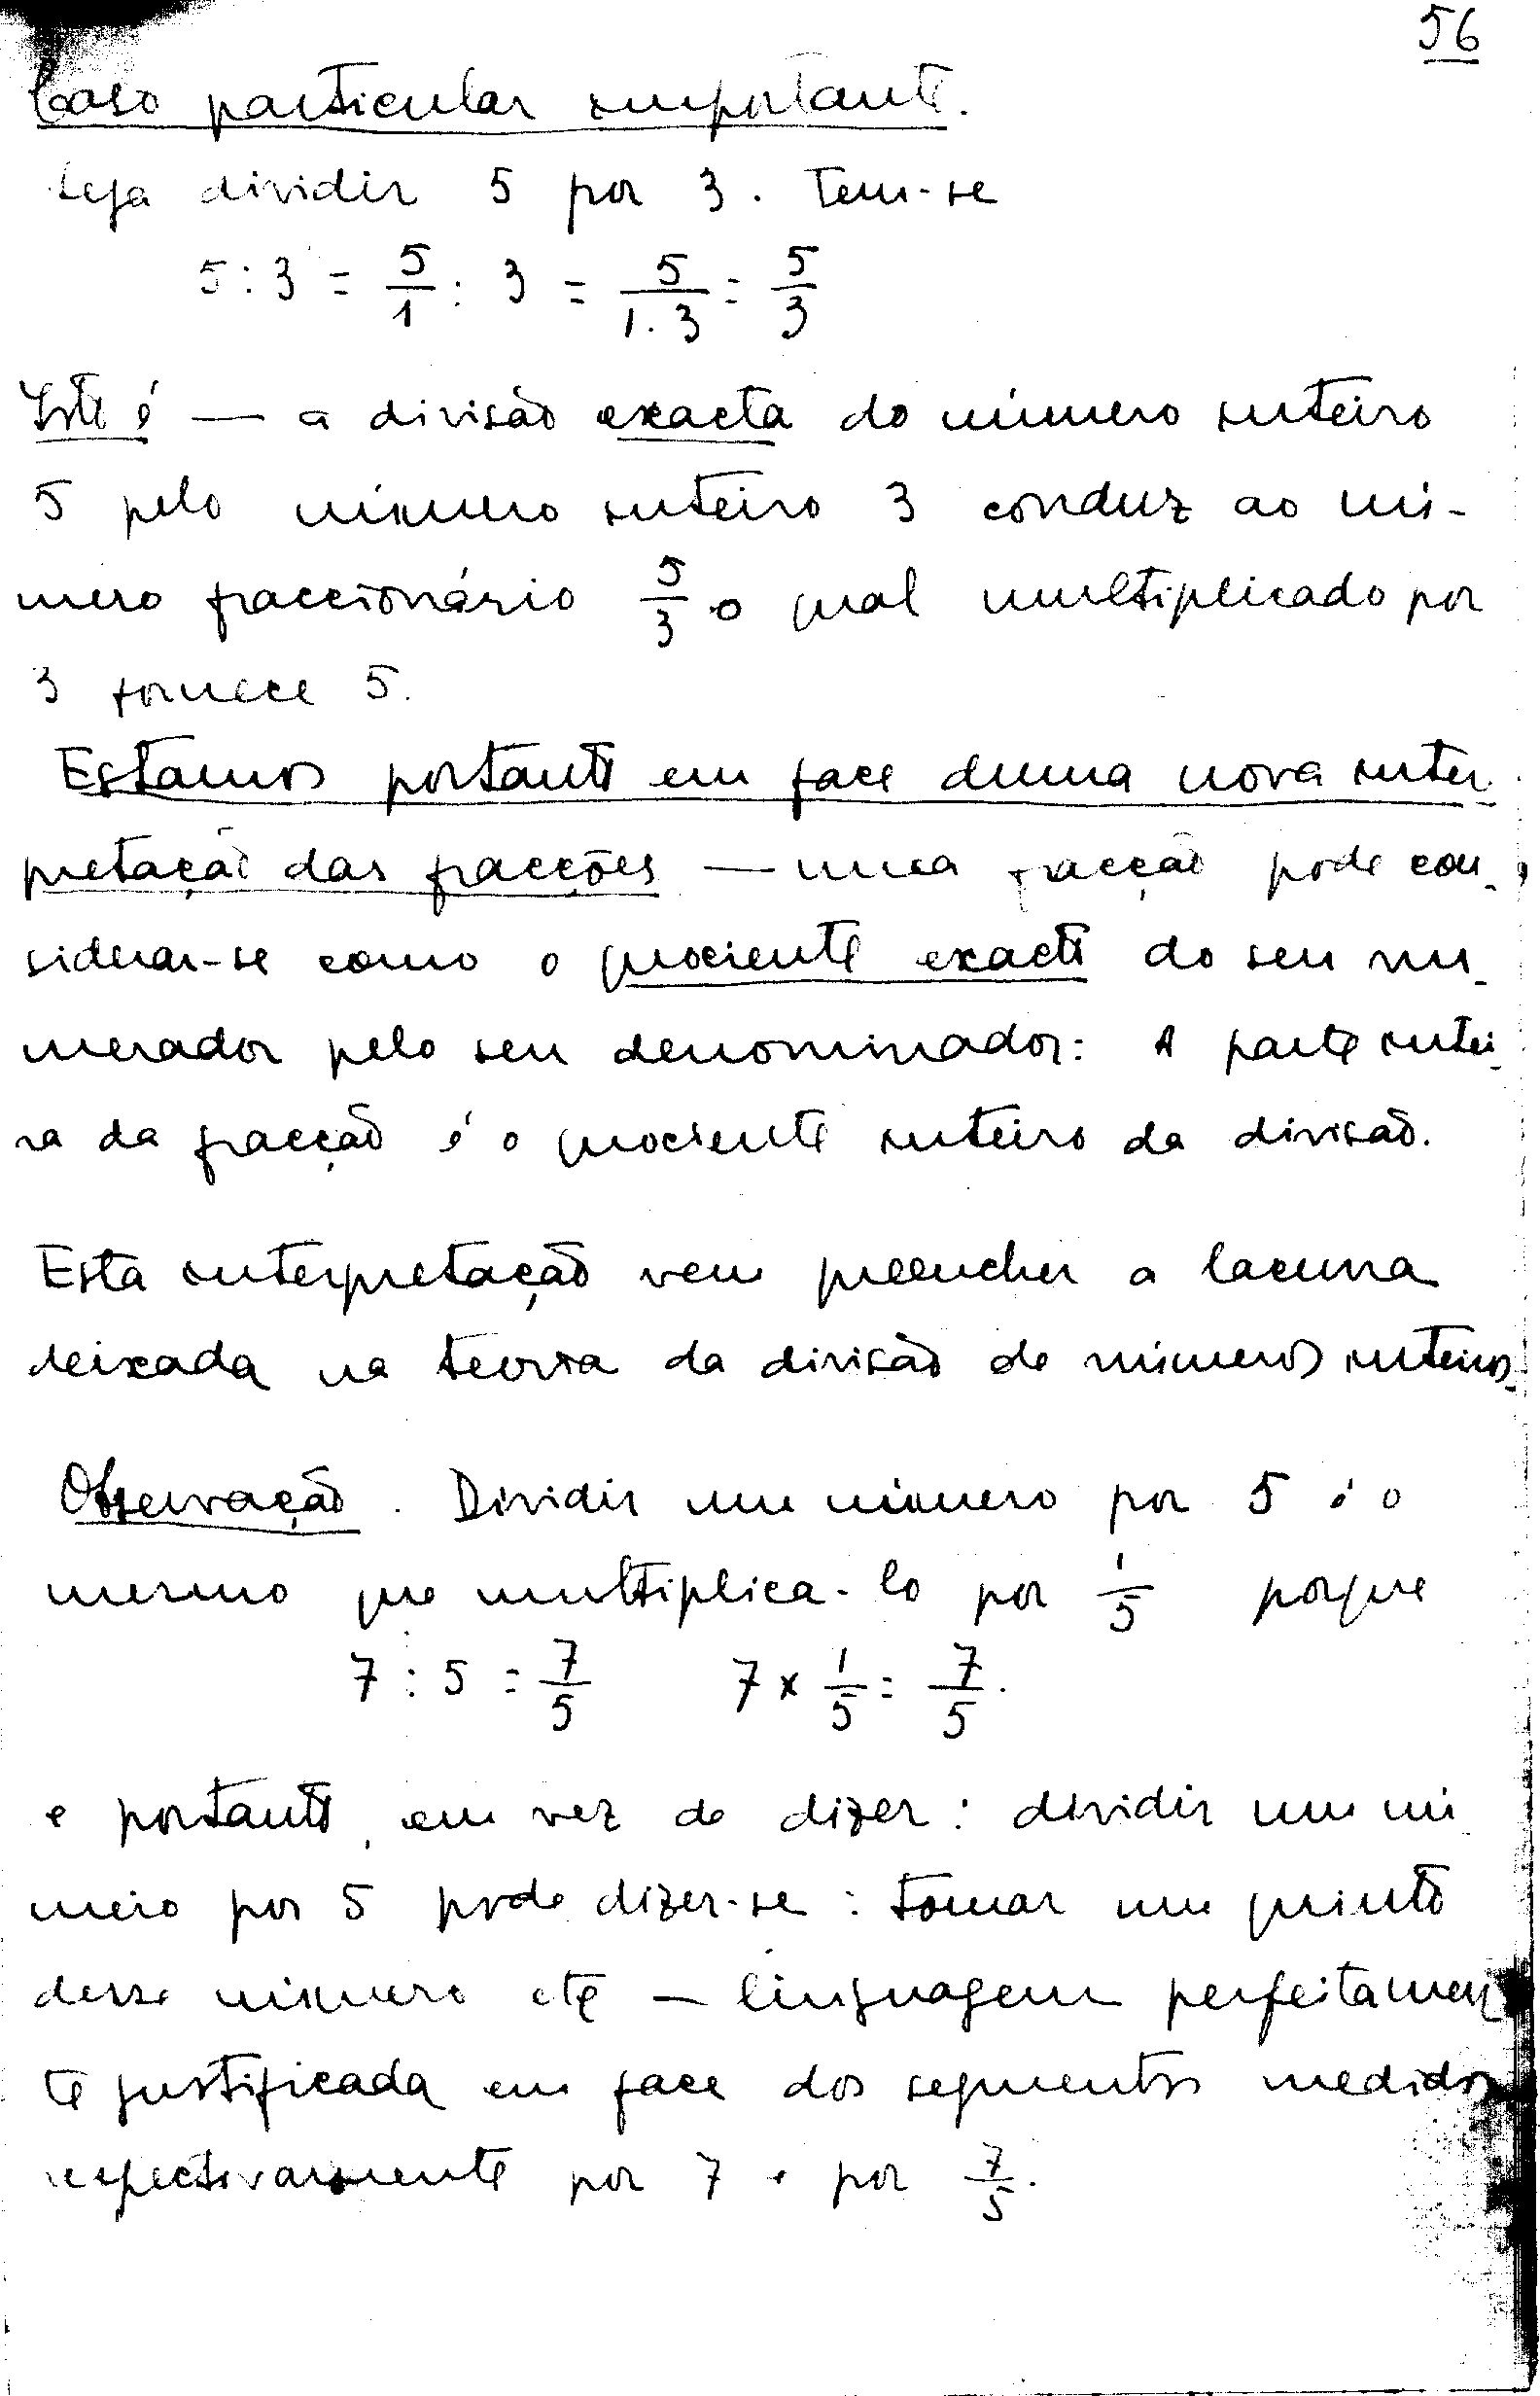 56
Caso particular importante.
Seja dividir 5 por 3. Tem-se
5 : 3 = 5/1 : 3 = 5/1.3 = 5/3
Isto é — a divisão exacta do número inteiro
5 pelo número inteiro 3 conduz ao nú-
mero fraccionário 5/3 o qual multiplicado por
3 fornece 5.
Estamos portanto em face duma nova inter-
pretação das fracções — uma fracção pode con-
siderar-se como o quociente exacto do seu nu-
merador pelo seu denominador: A parte intei-
ra da fracção é o quociente inteiro da divisão.
Esta interpretação vem preencher a lacuna
deixada na teoria da divisão de números inteiros.
Observação. Dividir um número por 5 é o
mesmo que multiplica-lo por 1/5 porque
7 : 5 = 7/5 7 × 1/5 = 7/5.
e portanto, em vez de dizer: dividir um nú
mero por 5 pode dizer-se: tomar um quinto
desse número etc — linguagem perfeitamen
te justificada em face dos segmentos medidos
respectivamente por 7 e por 7/5.